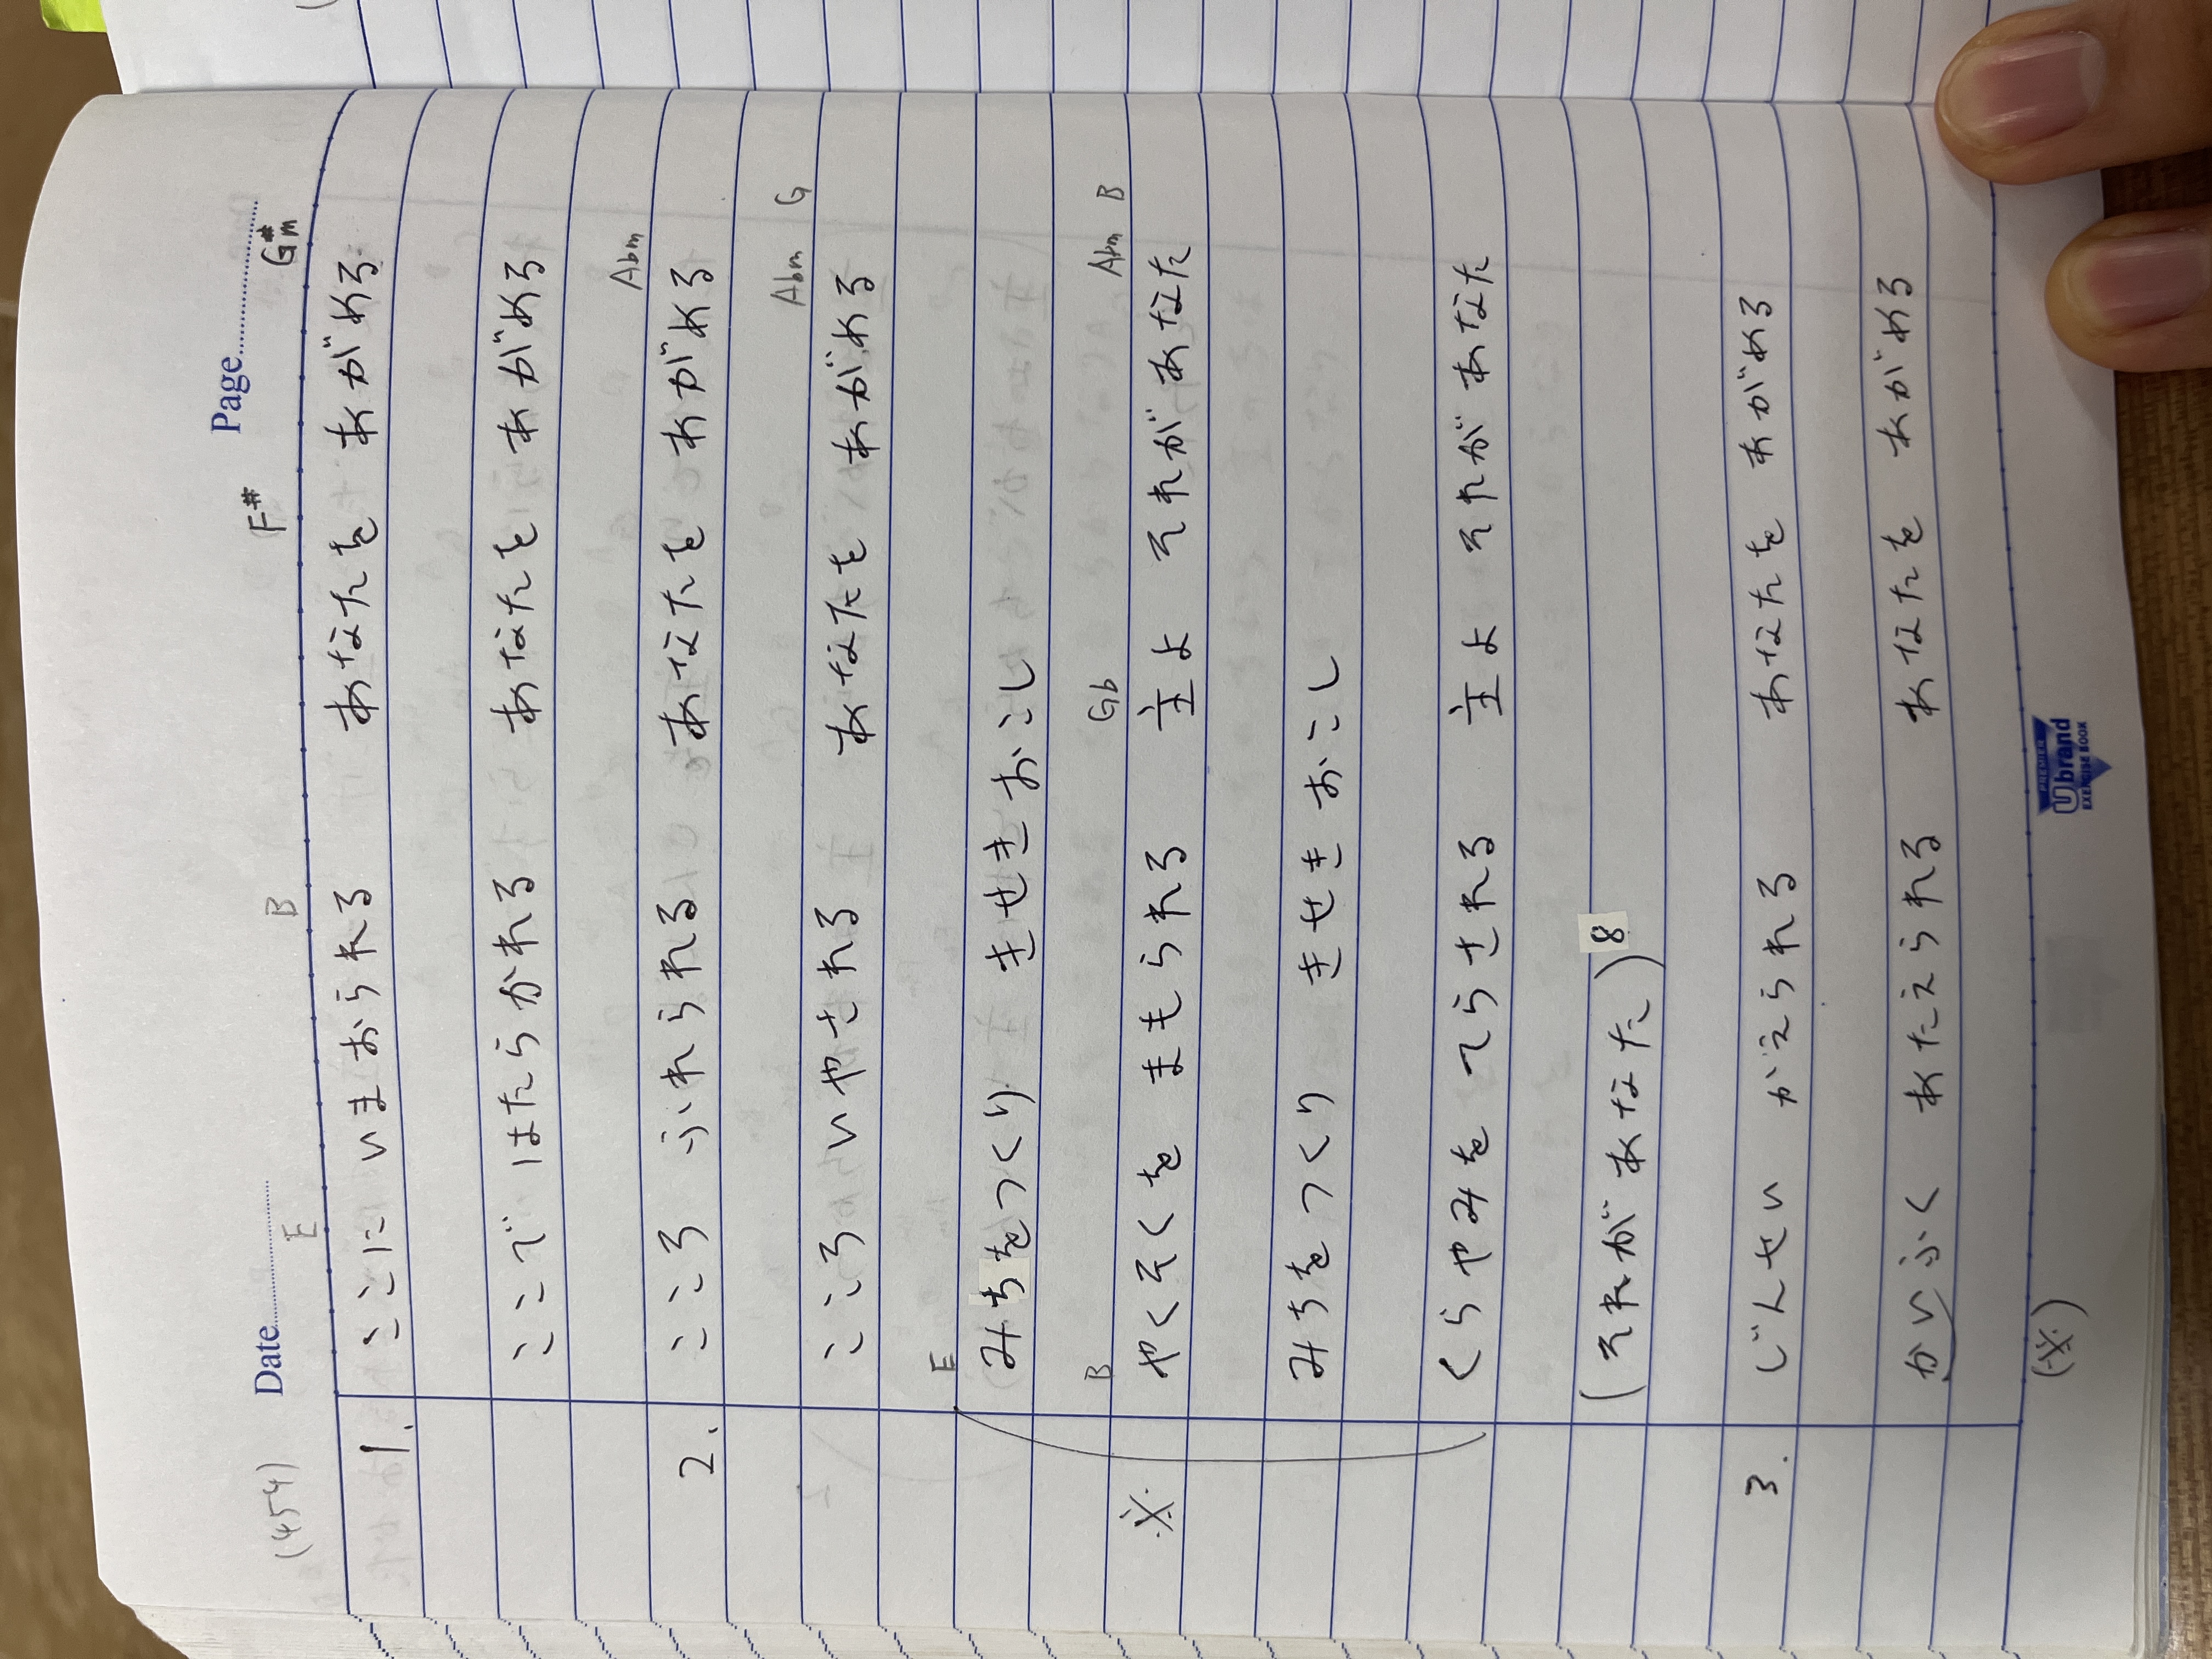 (454) Date Page
E B F# G#m
1. ここに いまおられる あなたを あがめる
ここで はたらかれる あなたを あがめる
Abm
2. こころ ふれられる あなたを あがめる
Abm G
こころ いやされる あなたを あがめる
E
みちをつくり きせきおこし
B Gb Abm B
※ やくそくを まもられる 主よ それがあなた
みちをつくり きせきおこし
くらやみを てらされる 主よ それがあなた
(それがあなた)8
3. じんせい かえられる あなたを あがめる
かいふく あたえられる あなたを あがめる
(※)
PREMIER
Ubrand
EXERCISE BOOK